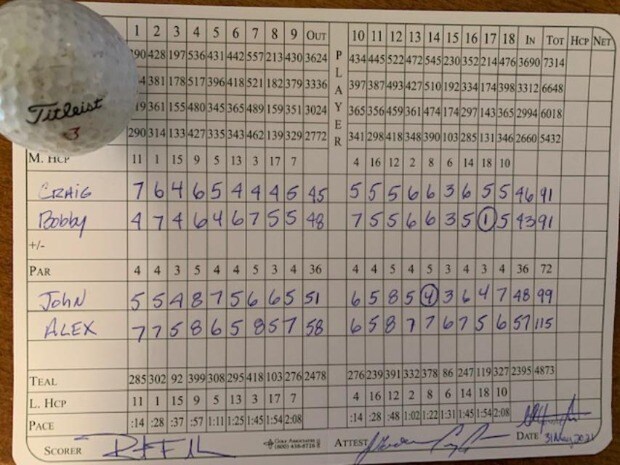 1 2 3 4 5 6 7 8 9 OUT PLAYER 10 11 12 13 14 15 16 17 18 IN TOT HCP NET
390 428 197 536 431 442 557 213 430 3624 434 445 522 472 545 230 352 214 476 3690 7314
381 178 517 396 418 521 182 379 3336 397 387 493 427 510 192 334 174 398 3312 6648
361 155 480 345 365 489 159 351 3024 365 356 459 361 474 174 297 143 365 2994 6018
290 314 133 427 335 343 462 139 329 2772 341 298 418 348 390 103 285 131 346 2660 5432
Titleist
3
M. HCP 11 1 15 9 5 13 3 17 7 4 16 12 2 8 6 14 18 10
CRAIG 7 6 4 6 5 4 4 4 5 45 5 5 5 6 6 3 6 5 5 46 91
Bobby 4 7 4 6 4 6 7 5 5 48 7 5 5 6 6 3 5 1 5 43 91
+/-
PAR 4 4 3 5 4 4 5 3 4 36 4 4 5 4 5 3 4 3 4 36 72
John 5 5 4 8 7 5 6 6 5 51 6 5 8 5 4 3 6 4 7 48 99
ALEX 7 7 5 8 6 5 8 5 7 58 6 5 8 7 7 6 7 5 6 57 115
TEAL 285 302 92 399 308 295 418 103 276 2478 276 239 391 332 378 86 247 119 327 2395 4873
L. HCP 11 1 15 9 5 13 3 17 7 4 16 12 2 8 6 14 18 10
PACE :14 :28 :37 :57 1:11 1:25 1:45 1:54 2:08 :14 :28 :48 1:02 1:22 1:31 1:45 1:54 2:08
SCORER ATTEST DATE 31 May, 2021